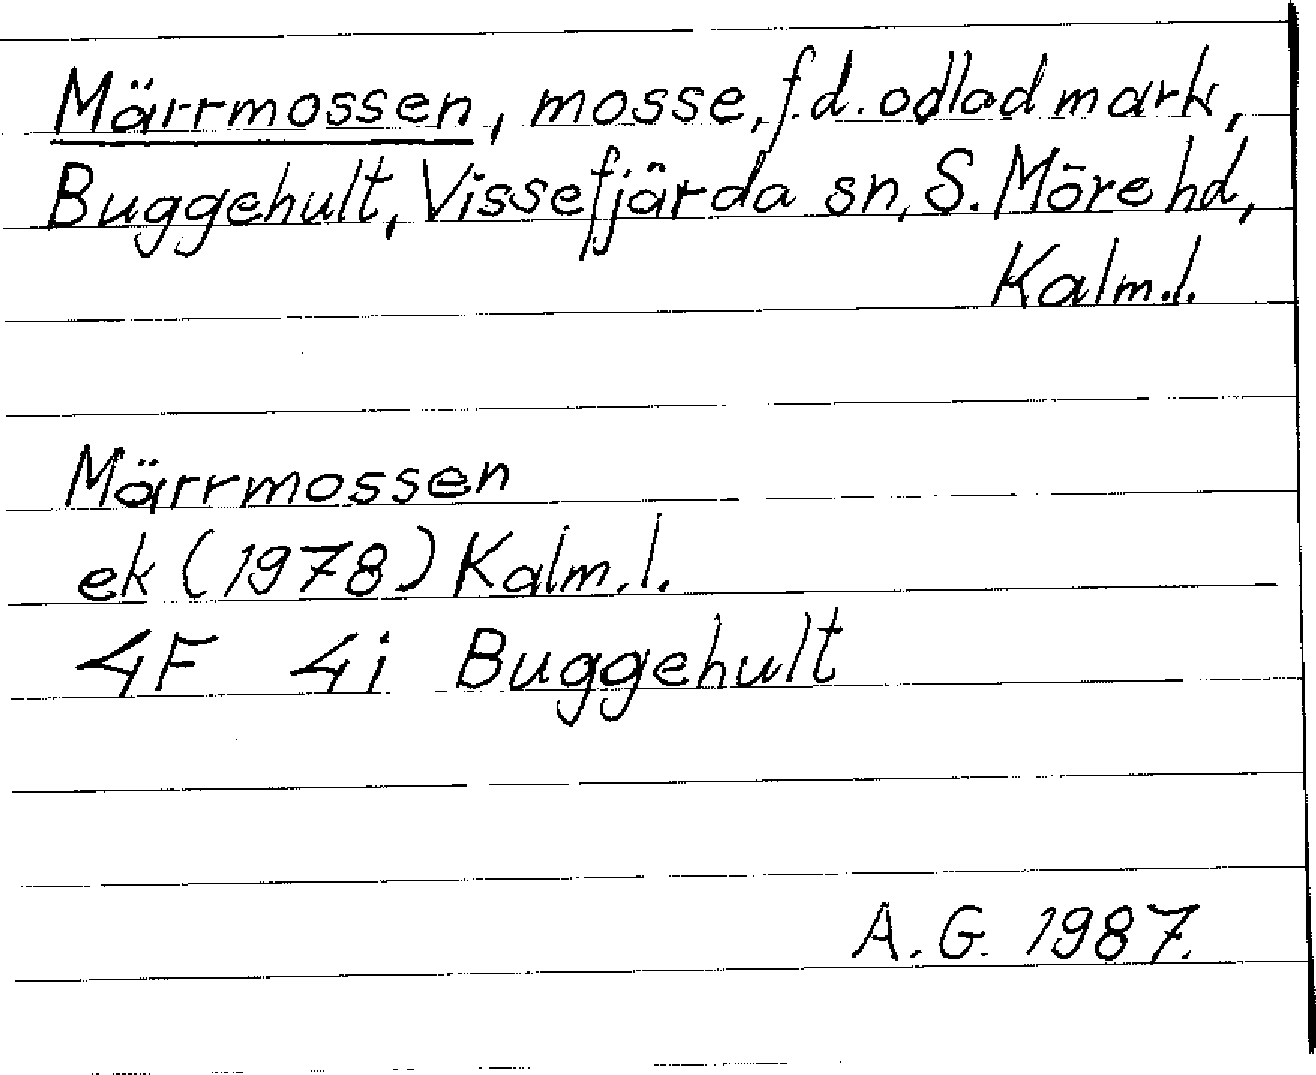 Märrmossen, mosse, f.d. odlad mark,
Buggehult, Vissefjärda sn, S. Möre hd,
Kalm.l.
Märrmossen
ek (1978) Kalm.l.
4F 4i Buggehult
A.G. 1987.